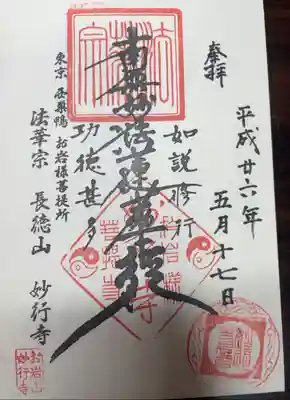 奉拝
平成廿六年
五月十七日
如説修行
南無妙法蓮華経
功徳甚多
東京 西巣鴨 お岩様菩提所
法華宗 長徳山 妙行寺
妙行寺